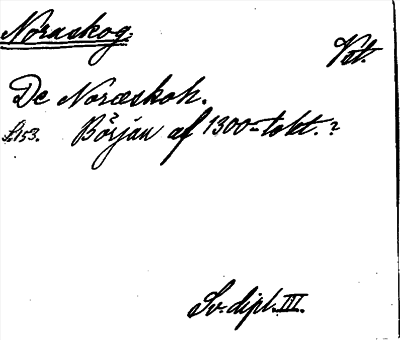 Noraskog.
Vstm.
De Noræskoh.
Början af 1300-talet.?
Sv. dipl. III.